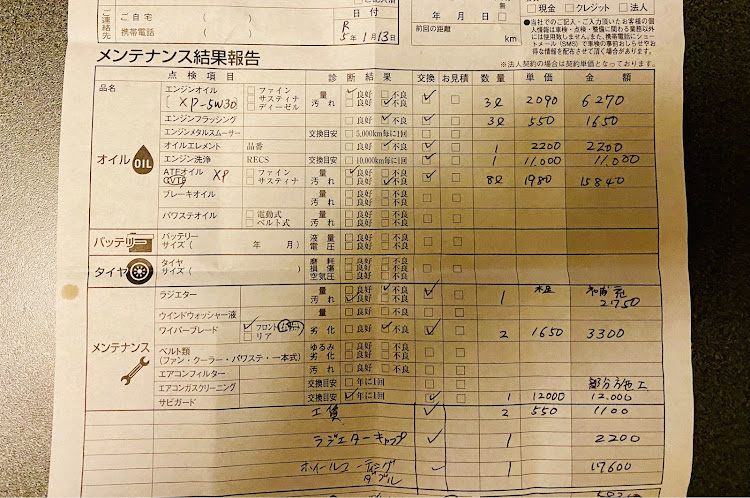 ご連絡先
ご自宅 ( )
携帯電話 ( )
日付
R 5年 1月 13日
年 月 日
無
前回の距離
km
□現金 □クレジット □法人
●当社でのご記入・ご入力頂いたお客様の個
人情報は車検・点検・整備に関わる業務以外
には使用致しません。また、携帯電話にショー
トメール(SMS)で車検の事前おしらせやお
得な情報を配布させて頂く場合があります。
メンテナンス結果報告
※法人契約の場合は契約単価となっております。
点検項目 診断結果 交換 お見積 数量 単価 金額
品名
オイル OIL
エンジンオイル □ファイン 量 □良好 □不良
( XP-5W30 ) □サスティナ 汚れ □良好 □不良 3ℓ 2090 6270
□ディーゼル
エンジンフラッシング □良好 □不良 3ℓ 550 1650
エンジンメタルスムーサー 交換目安 □5,000km毎に1回
オイルエレメント 品番 □良好 □不良 1 2200 2200
エンジン洗浄 RECS 交換目安 □10,000km毎に1回 1 11.000 11.000
ATEオイル XP □ファイン 量 □良好 □不良
CVTF □サスティナ 汚れ □良好 □不良 8ℓ 1980 15840
ブレーキオイル 量 □良好 □不良
汚れ □良好 □不良
パワステオイル □電動式 量 □良好 □不良
□ベルト式 汚れ □良好 □不良
バッテリー
バッテリー 液量 □良好 □不良
サイズ ( 年 月) 電圧 □良好 □不良
タイヤ
タイヤ 磨耗 □良好 □不良
サイズ ( ) 損傷 □良好 □不良
空気圧 □良好 □不良
メンテナンス
ラジエター 量 □良好 □不良
汚れ □良好 □不良 1 2750
ウインドウォッシャー液 量 □良好 □不良
ワイパーブレード □フロント 劣化 □良好 □不良 2 1650 3300
□リア
ベルト類 ゆるみ □良好 □不良
(ファン・クーラー・パワステ・一本式) 劣化 □良好 □不良
エアコンフィルター 汚れ □良好 □不良
エアコンガスクリーニング 交換目安 □年に1回 部分施工
サビガード 交換目安 □年に1回 1 12000 12.000
工賃 2 550 1100
ラジエターキャップ 1 2200
ホイールコーティング
ダブル 1 17600